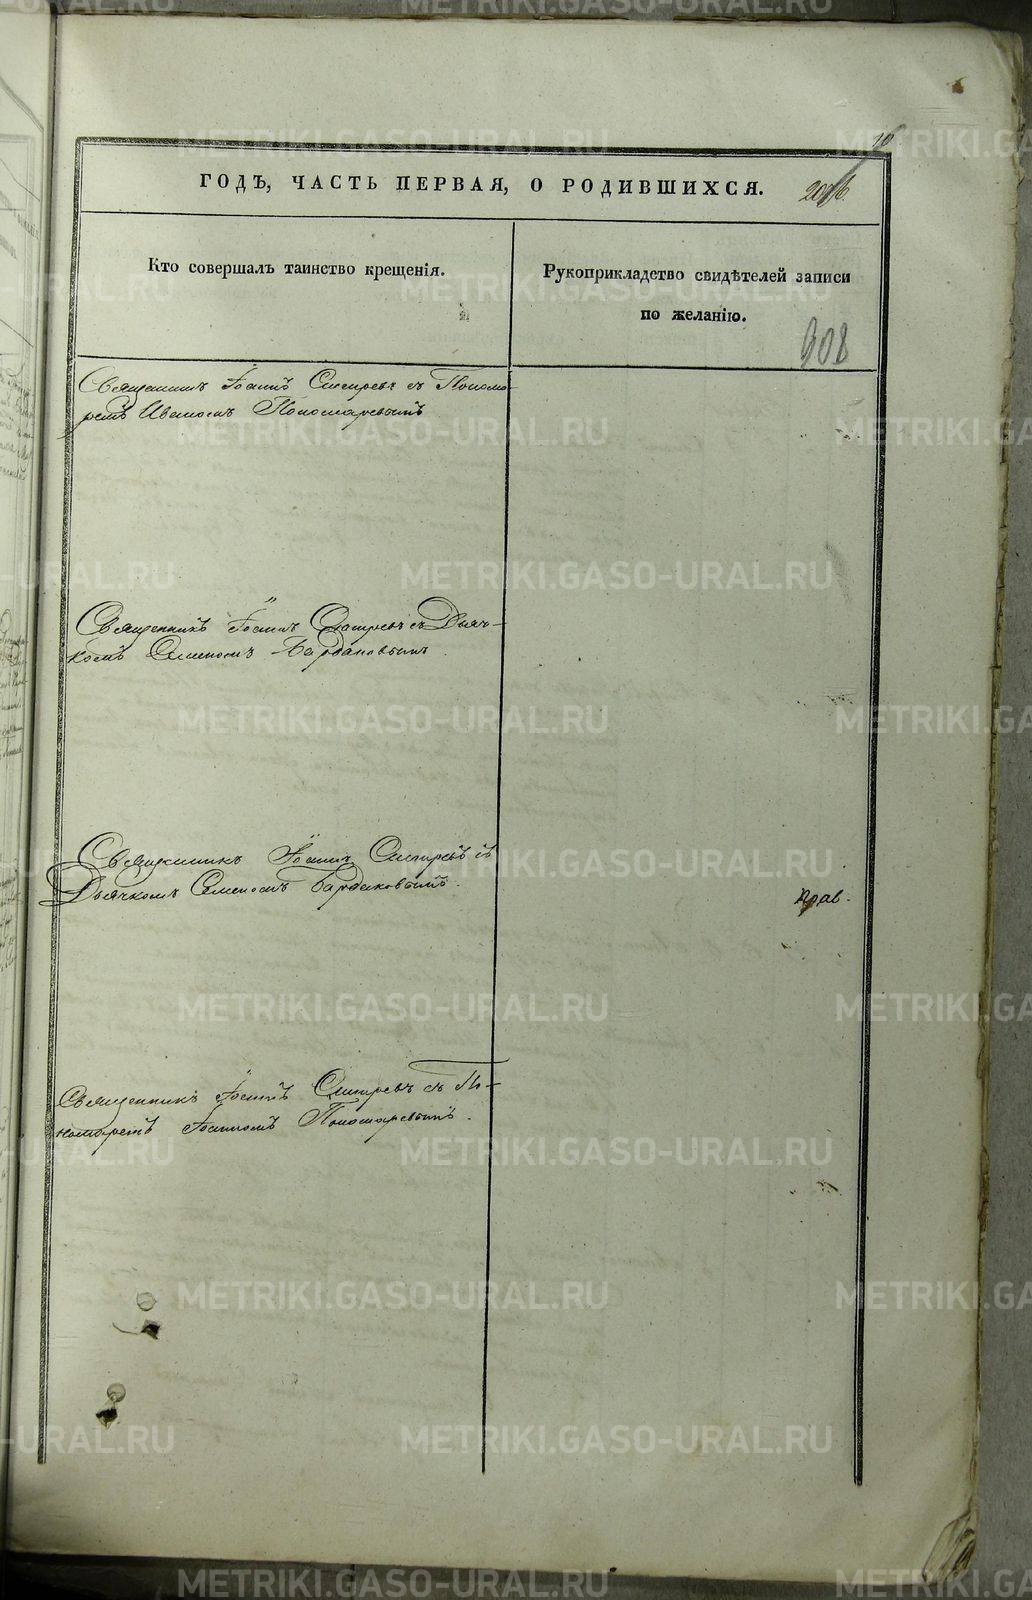 10
ГОДЪ, ЧАСТЬ ПЕРВАЯ, О РОДИВШИХСЯ.
Кто совершалъ таинство крещенія.
Рукоприкладство свидѣтелей записи
по желанію.
308
Священникъ Іоаннъ Снигревъ съ Понома-
ремъ Иваномъ Пономаревымъ
Священникъ Іоаннъ Снигревъ съ Дьяч-
комъ Семеномъ Бардаковымъ.
Священникъ Іоаннъ Снигревъ съ
Дьячкомъ Семеномъ Бардаковымъ.
Священникъ Іоаннъ Снигревъ съ По-
номаремъ Іоанномъ Пономаревымъ.
METRIKI.GASO-URAL.RU